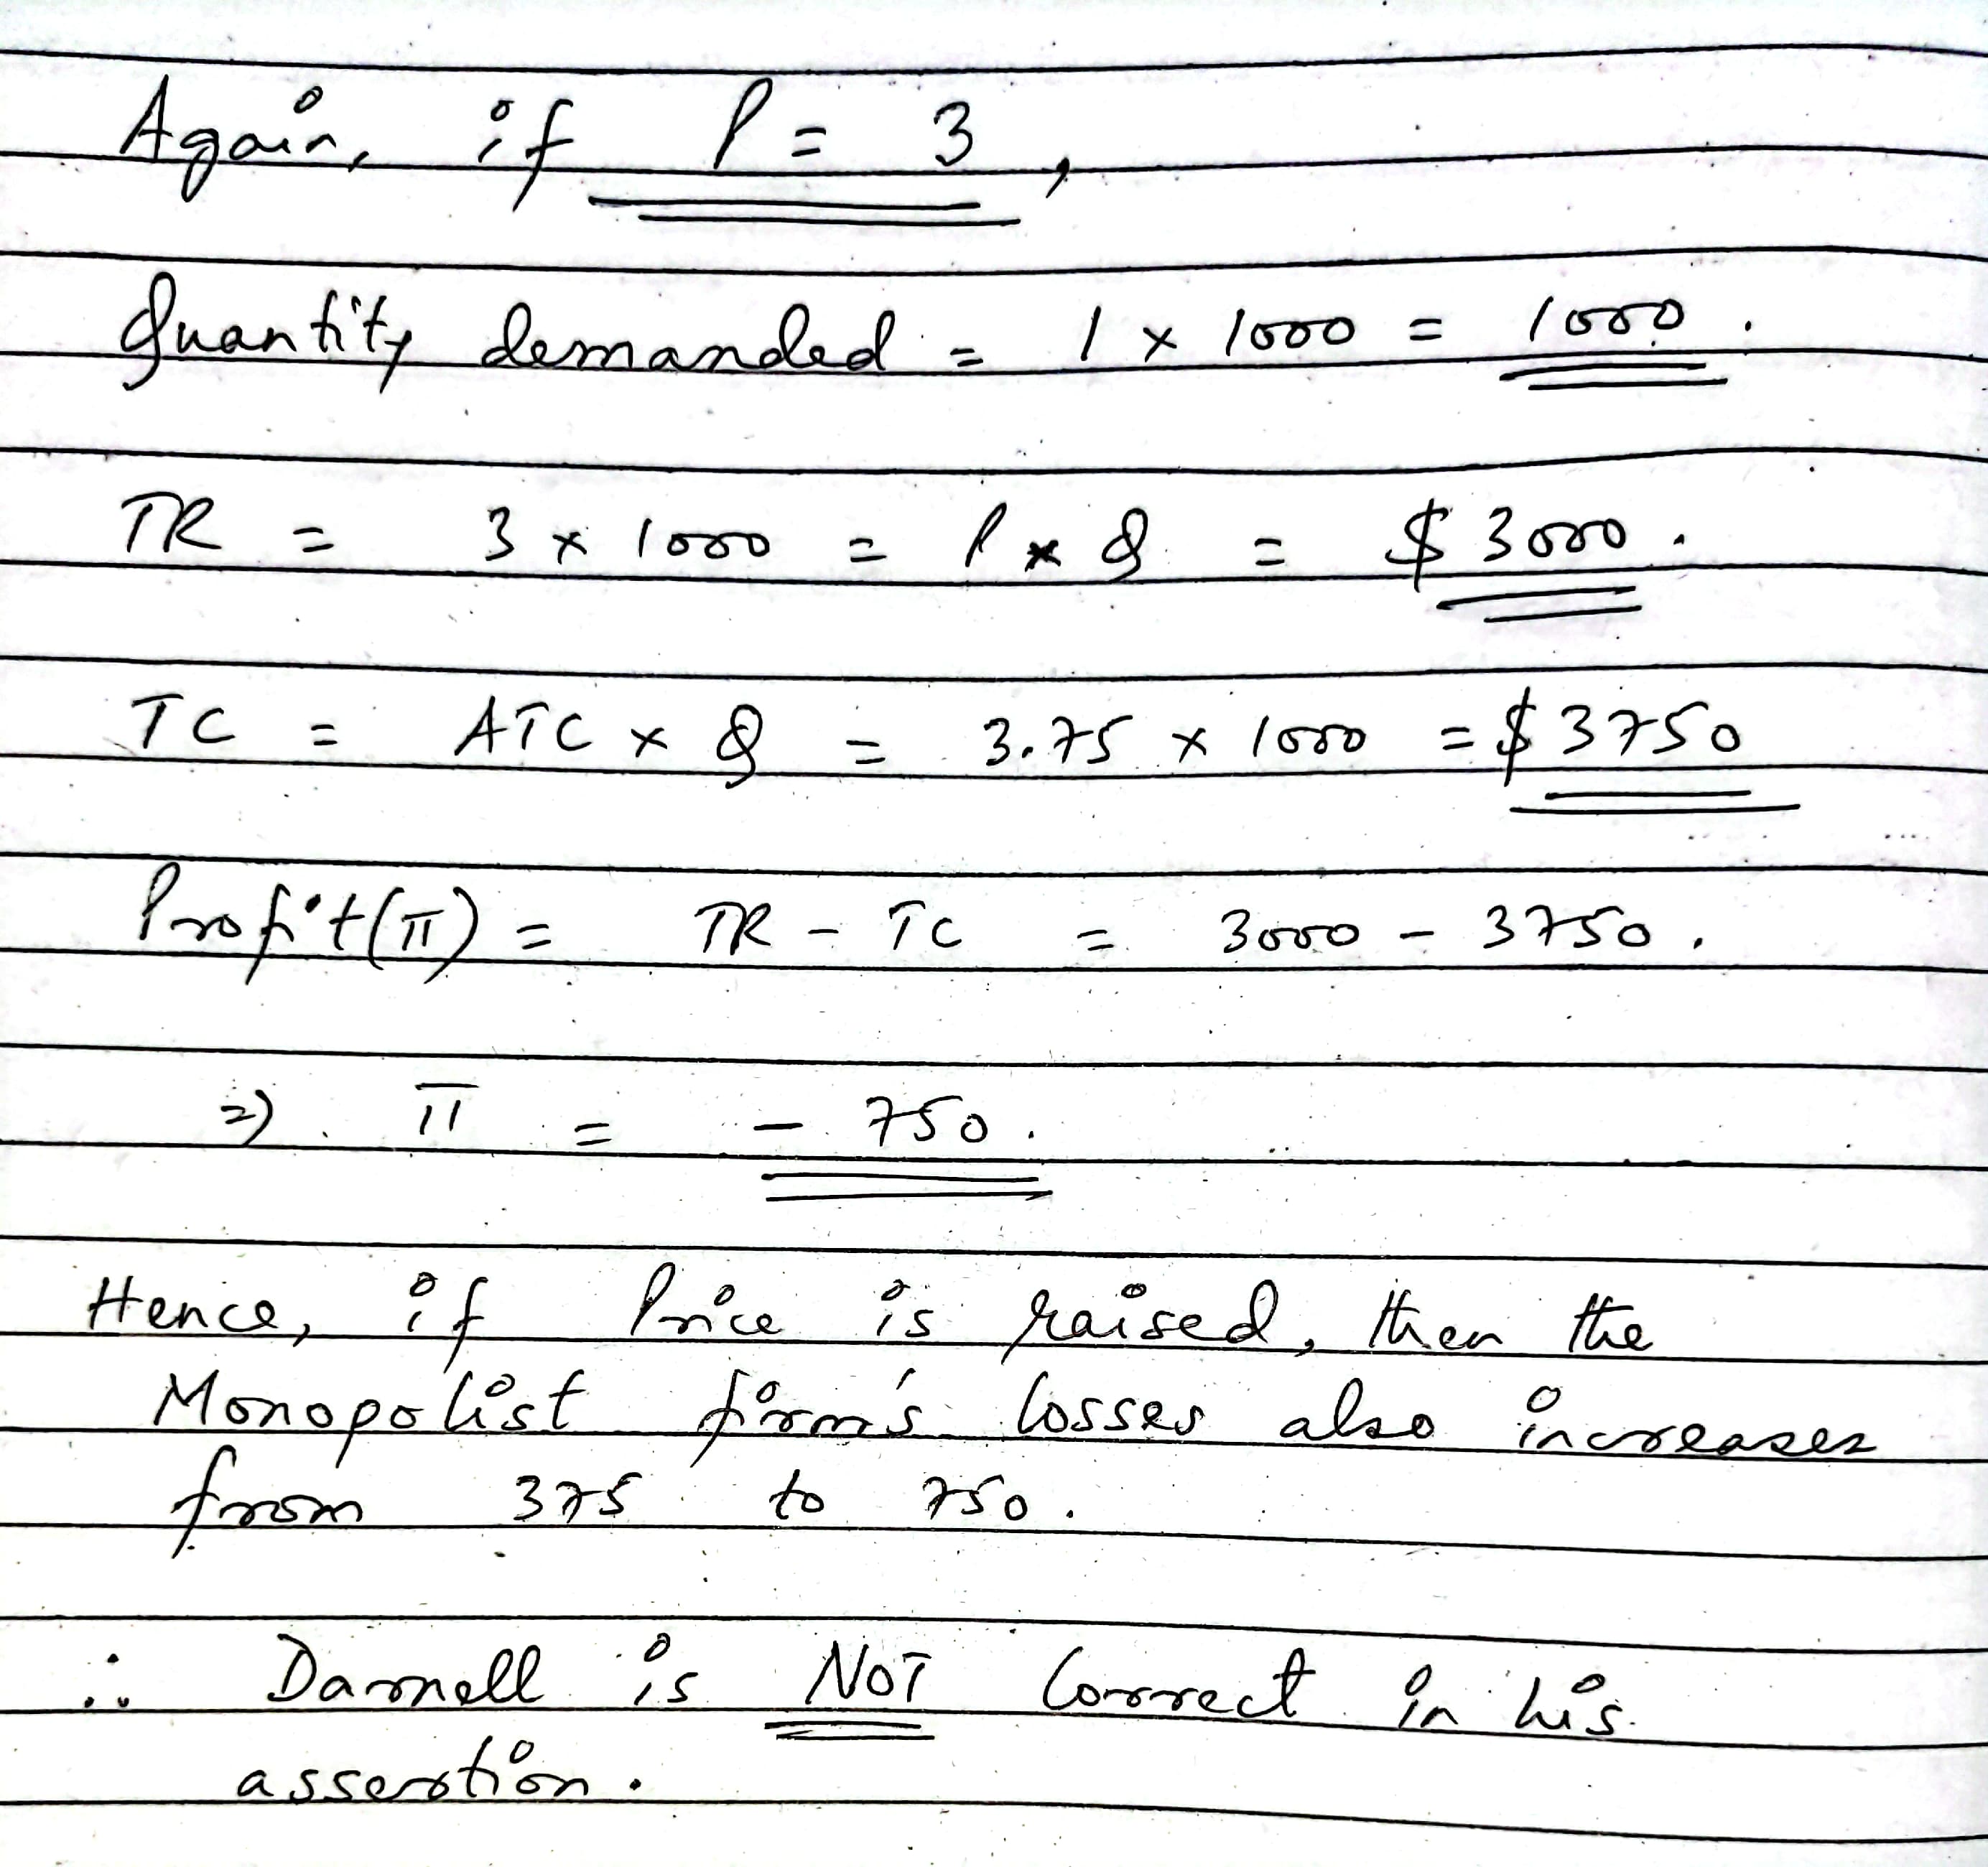 Again, if P = 3,
Quantity demanded = 1 x 1000 = 1000.
TR = 3 x 1000 = P x Q = $3000.
TC = ATC x Q = 3.75 x 1000 = $3750
Profit(π) = TR - TC = 3000 - 3750.
=) π = - 750.
Hence, if Price is raised, then the
Monopolist firm's losses also increases
from 375 to 750.
∴ Darnell is NOT Correct in his
assertion.